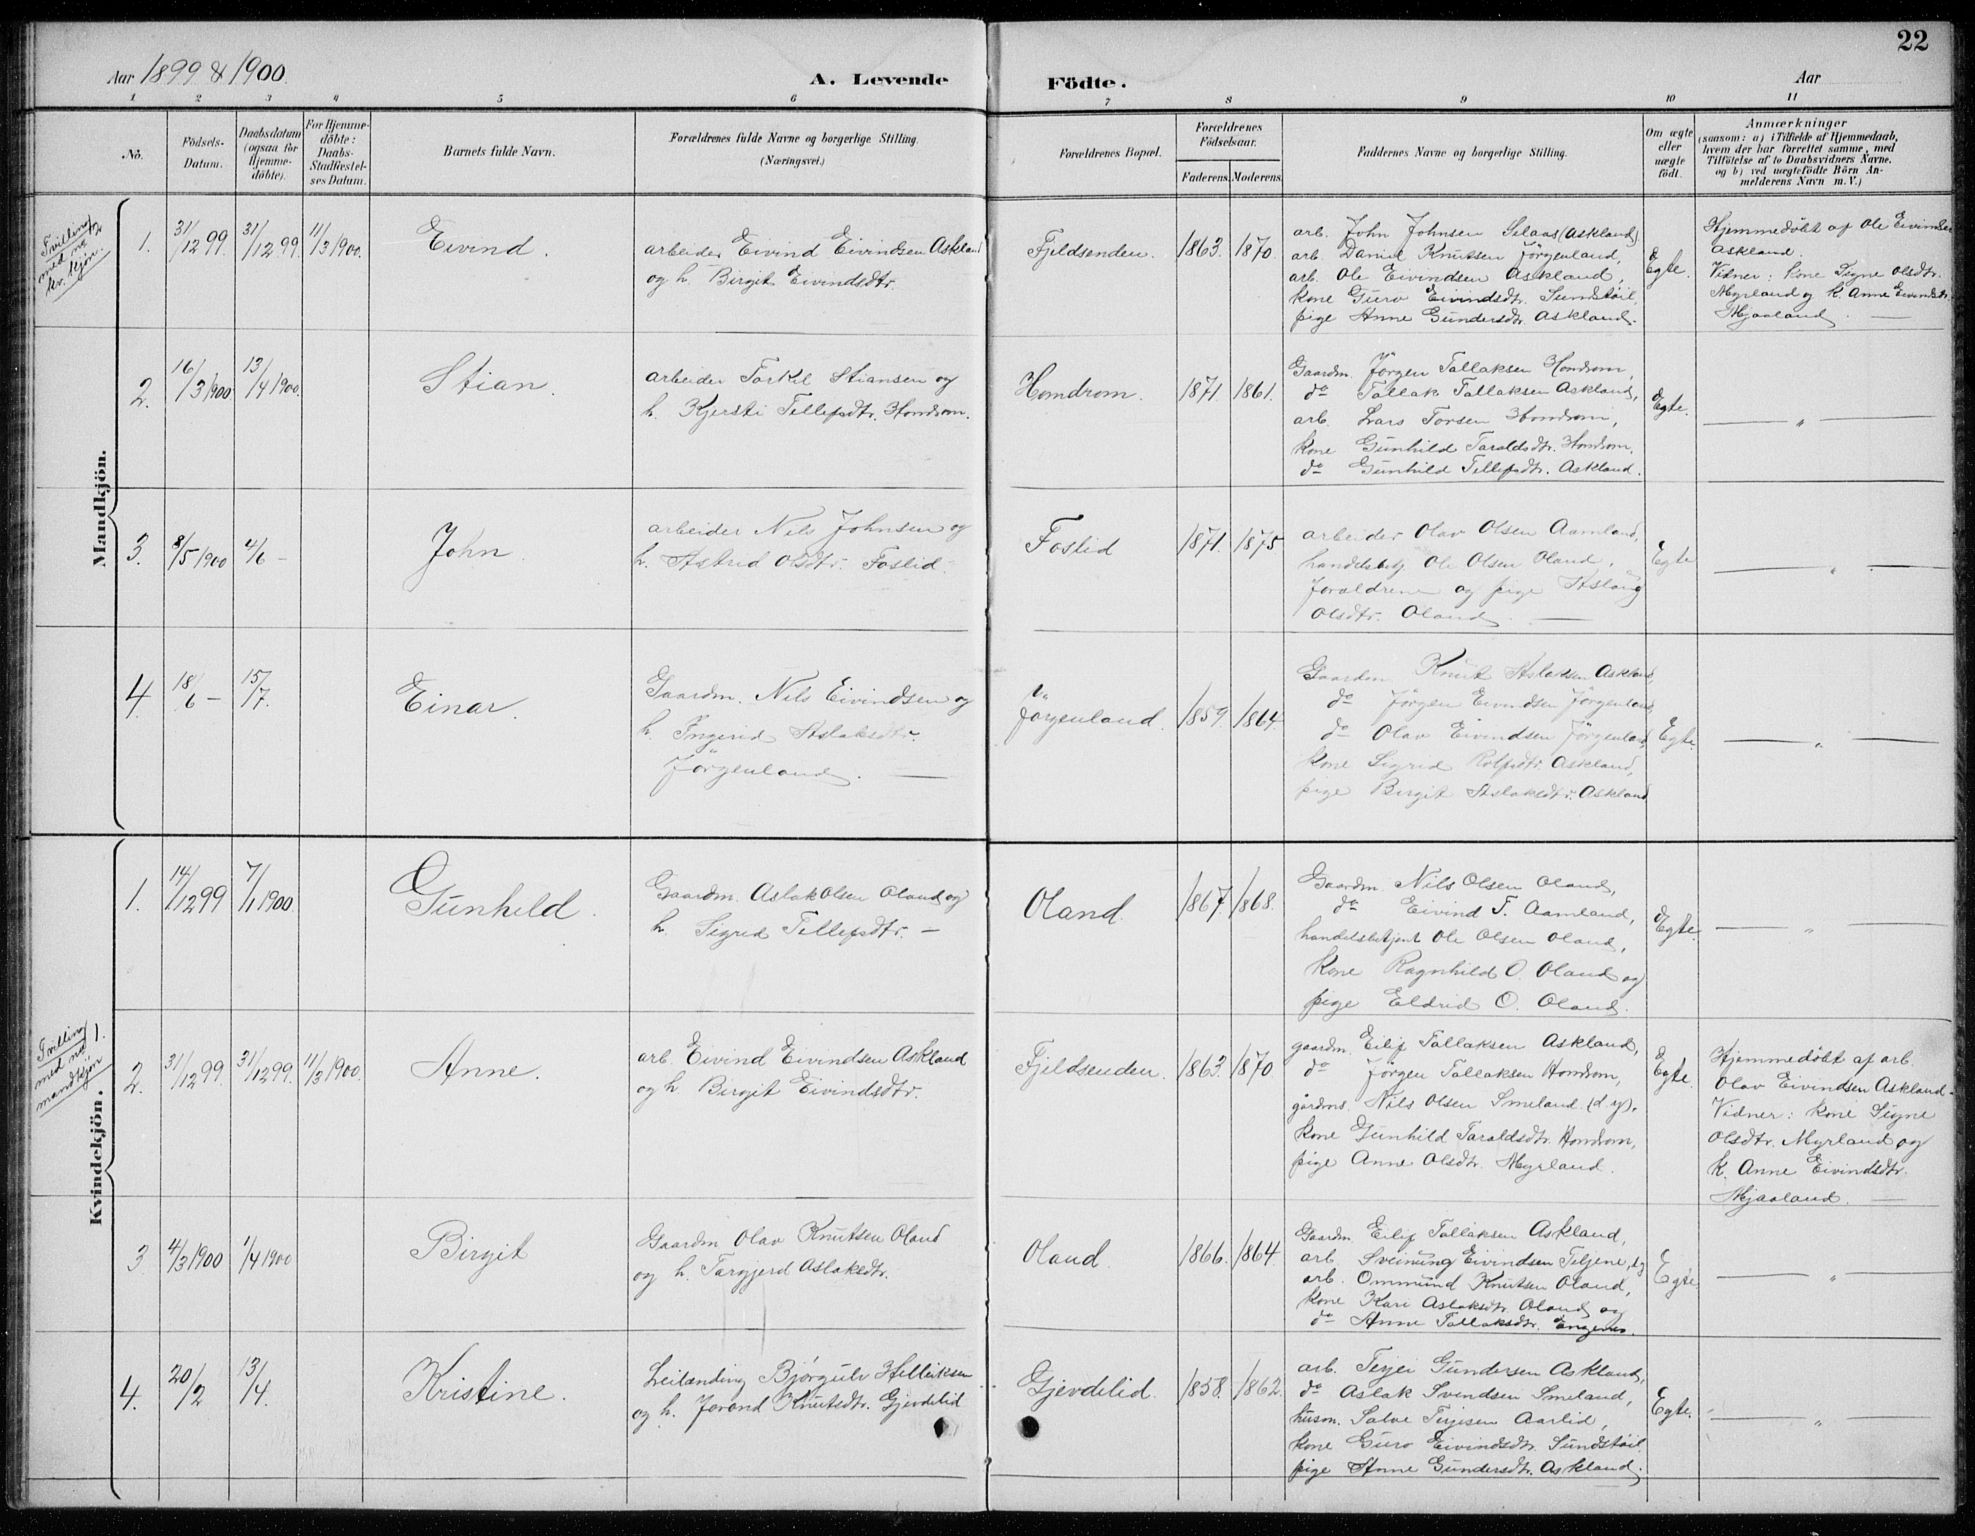 22
Aar 1899 & 1900.
A. Levende Födte.
Aar
1 2 3 4 5 6 7 8 9 10 11
No.
Födsels-Datum.
Daabsdatum (ogsaa for Hjemme-döbte).
For Hjemme-döbte: Daabs-Stadfæstel-ses Datum.
Barnets fulde Navn.
Forældrenes fulde Navne og borgerlige Stilling. (Næringsvei.)
Forældrenes Bopæl.
Forældrenes Födselsaar.
Faderens. Moderens.
Faddernes Navne og borgerlige Stilling.
Om ægte eller uægte födt.
Anmærkninger
(saasom: a) i Tilfælde af Hjemmedaab,
hvem der har forrettet samme, med
Tilföielse af to Daabsvidners Navne.
og b) ved uægtefödte Börn An-
melderens Navn m. V.)
Mandkjön.
Tvilling
med no 2
kv. kjön.
1. 31/12 99. 31/12 99. 11/3 1900. Eivind.
arbeider Eivind Eivindsen Askland
og h. Birgit Eivindsdtr.
Fjeldsenden. 1863. 1870.
arb. John Johnsen Selaas (Askland).
arb. Daniel Knutsen Jörgenland,
arb. Ole Eivindsen Askland,
kone Guro Eivindsdtr. Sundstöil
pige Anne Gundersdtr. Askland.
Egte.
Hjemmedöbt af Ole Eivindsen
Askland.
Vidner: kone Signe Olsdtr.
Myrland og k. Anne Eivindsdtr.
Mjaaland.
2. 16/3 1900 13/4 1900. Stian.
arbeider Torkil Stiansen og
h. Kjersti Tellefsdtr. Homdrom.
Homdrom. 1871. 1861.
Gaardm. Jörgen Tallaksen Homdrom,
do Tallak Tallaksen Askland,
arb. Lars Torsen Homdrom,
kone Gunhild Taraldsdtr. Homdrom,
do Gunhild Tellefsdtr. Askland.
Egte.
"
3. 8/5 1900 4/6 - John.
arbeider Nils Johnsen og
h. Astrid Olsdtr. Foslid.
Foslid 1871. 1875
arbeider Olav Olsen Aamland,
handelsbetj Ole Olsen Oland,
forældrene og pige Aslaug
Olsdtr. Oland.
Egte
"
4. 18/6 - 15/7. Einar.
Gaardm. Nils Eivindsen og
h. Ingerid Aslaksdtr.
Jörgenland.
Jörgenland. 1859. 1864.
Gaardm Knut Aslaksen Askland,
do Jörgen Eivindsen Jörgenland,
do Olav Eivindsen Jörgenland,
kone Sigrid Rolfsdtr. Askland,
pige Birgit Aslaksdtr. Askland
Egte.
"
Kvindekjön.
1. 14/12 99 7/1 1900. Gunhild.
Gaardm. Aslak Olsen Oland og
h. Sigrid Tellefsdtr. -
Oland. 1867. 1868.
Gaardm Nils Olsen Oland,
do Eivind T. Aamland,
handelsbetjent Ole Olsen Oland,
kone Ragnhild O. Oland og
pige Eldrid O. Oland.
Egte.
"
Tvilling
med no 1.
mandkjön
2. 31/12 99. 31/12 99. 11/3 1900. Anne.
arb. Eivind Eivindsen Askland
og h. Birgit Eivindsdtr.
Fjeldsenden. 1863. 1870
gaardm. Eilif Tallaksen Askland,
do Jörgen Tallaksen Homdrom,
gårdms. Nils Olsen Smeland (d.y),
kone Gunhild Taraldsdtr. Homdrom,
pige Anne Olsdtr. Myrland.
Egte.
Hjemmedöbt af arb.
Olav Eivindsen Askland.
Vidner: kone Signe
Olsdtr. Myrland og
k. Anne Eivindsdtr.
Mjaaland.
3 4/3 1900 1/4 1900 Birgit
Gaardm Olav Knutsen Oland
og h. Targjerd Aslaksdtr.
Oland. 1866. 1864.
Gaardm. Eilif Tallaksen Askland,
arb. Sveinung Eivindsen Teljene,
arb. Ommund Knutsen Oland,
kone Kari Aslaksdtr. Oland og
do Anne Tallaksdtr.
Egte
"
4. 20/2 13/4. Kristine.
Leilænding Björgulv Helleiksen
og h. Jorand Knutsdtr. Gjevdelid
Gjevdelid. 1858. 1862.
arb. Terjei Gundersen Askland,
do Aslak Svendsen Smeland,
husm. Salve Terjesen Aarlid,
kone Guro Eivindsdtr. Sundstöil
pige Anne Gundersdtr. Askland.
Egte.
"